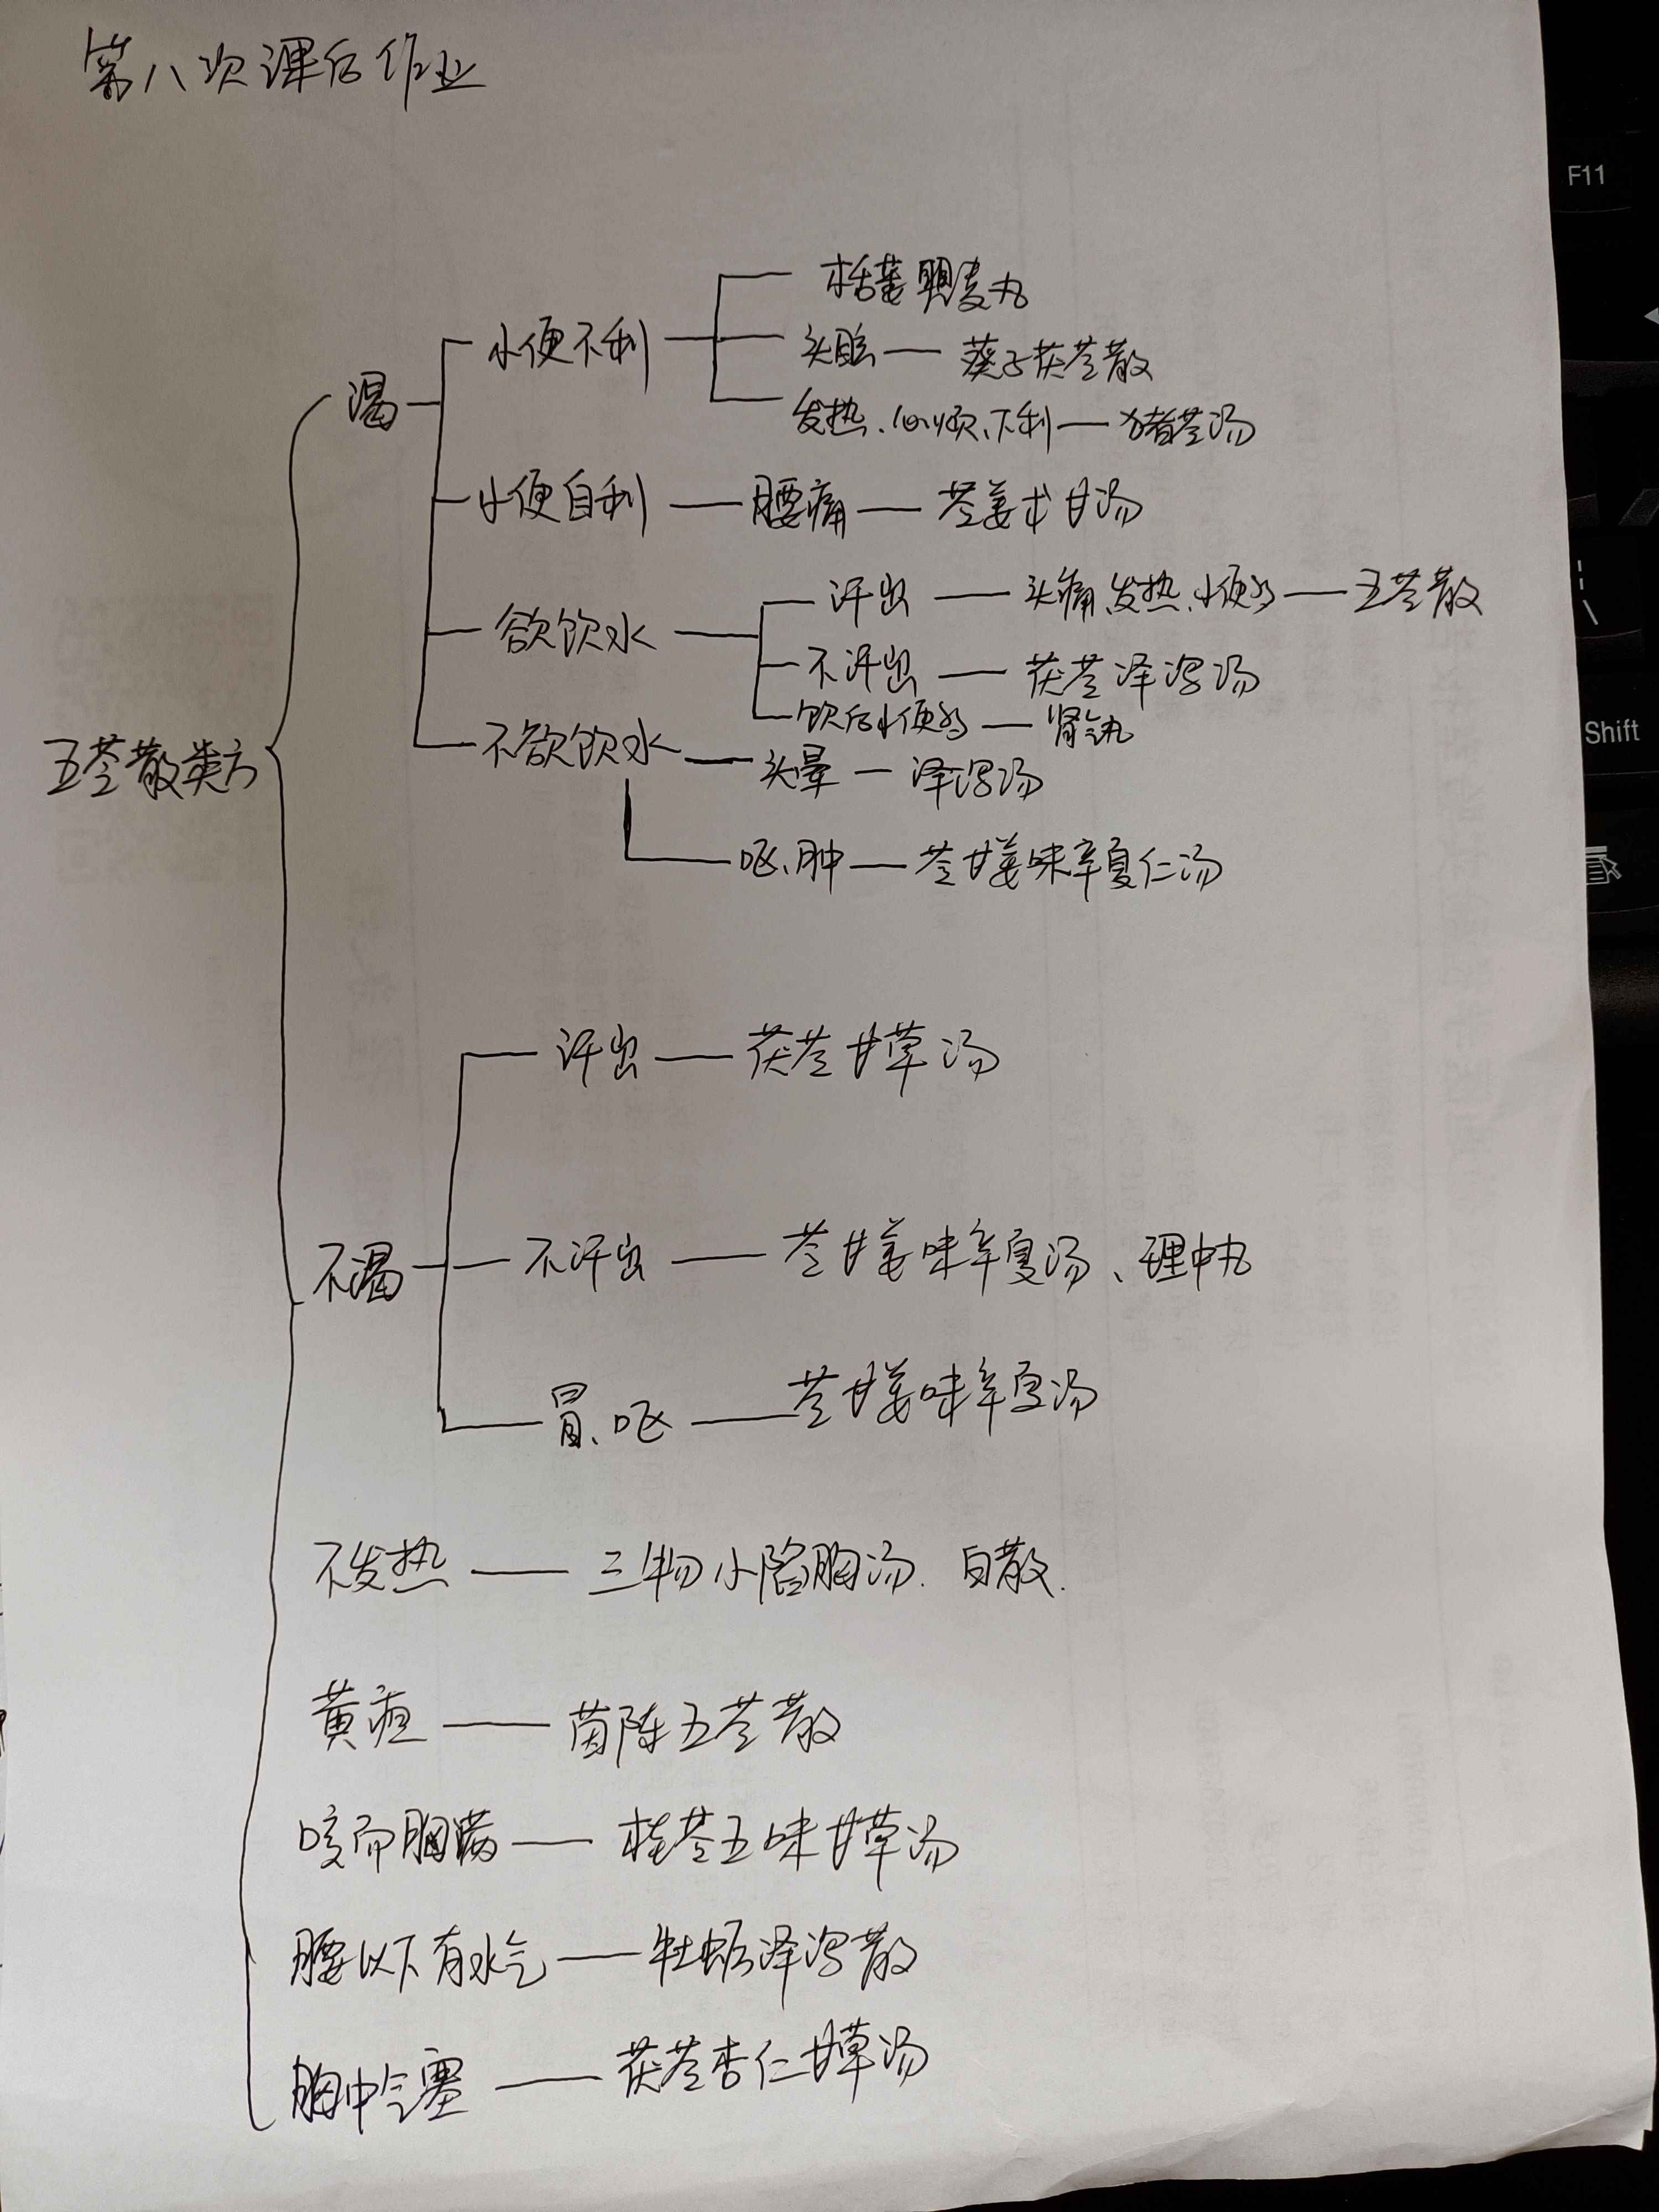 第八次课后作业
五苓散类方
渴
小便不利
栝蒌瞿麦丸
头眩 葵子茯苓散
发热、心烦、下利 猪苓汤
小便自利 腰痛 苓姜术甘汤
欲饮水
汗出 头痛、发热、小便多 五苓散
不汗出 茯苓泽泻汤
饮后小便多 肾气丸
不欲饮水 头晕 泽泻汤
呕、肿 苓甘姜味辛夏仁汤
不渴
汗出 茯苓甘草汤
不汗出 苓甘姜味辛夏汤、理中丸
冒、呕 苓甘姜味辛夏汤
不发热 三物小陷胸汤.白散.
黄疸 茵陈五苓散
咳而胸满 桂苓五味甘草汤
腰以下有水气 牡蛎泽泻散
胸中气塞 茯苓杏仁甘草汤
F11
Shift